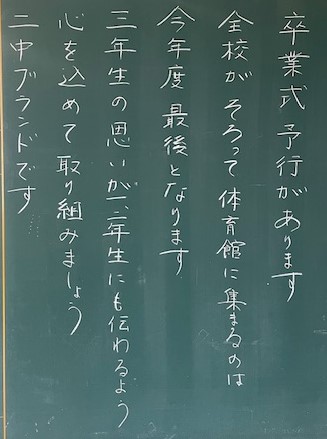 卒業式 予行があります
全校が そろって 体育館に集まるのは
今年度 最後となります
三年生の思いが一、二年生にも伝わるよう
心を込めて取り組みましょう
二中ブランドです